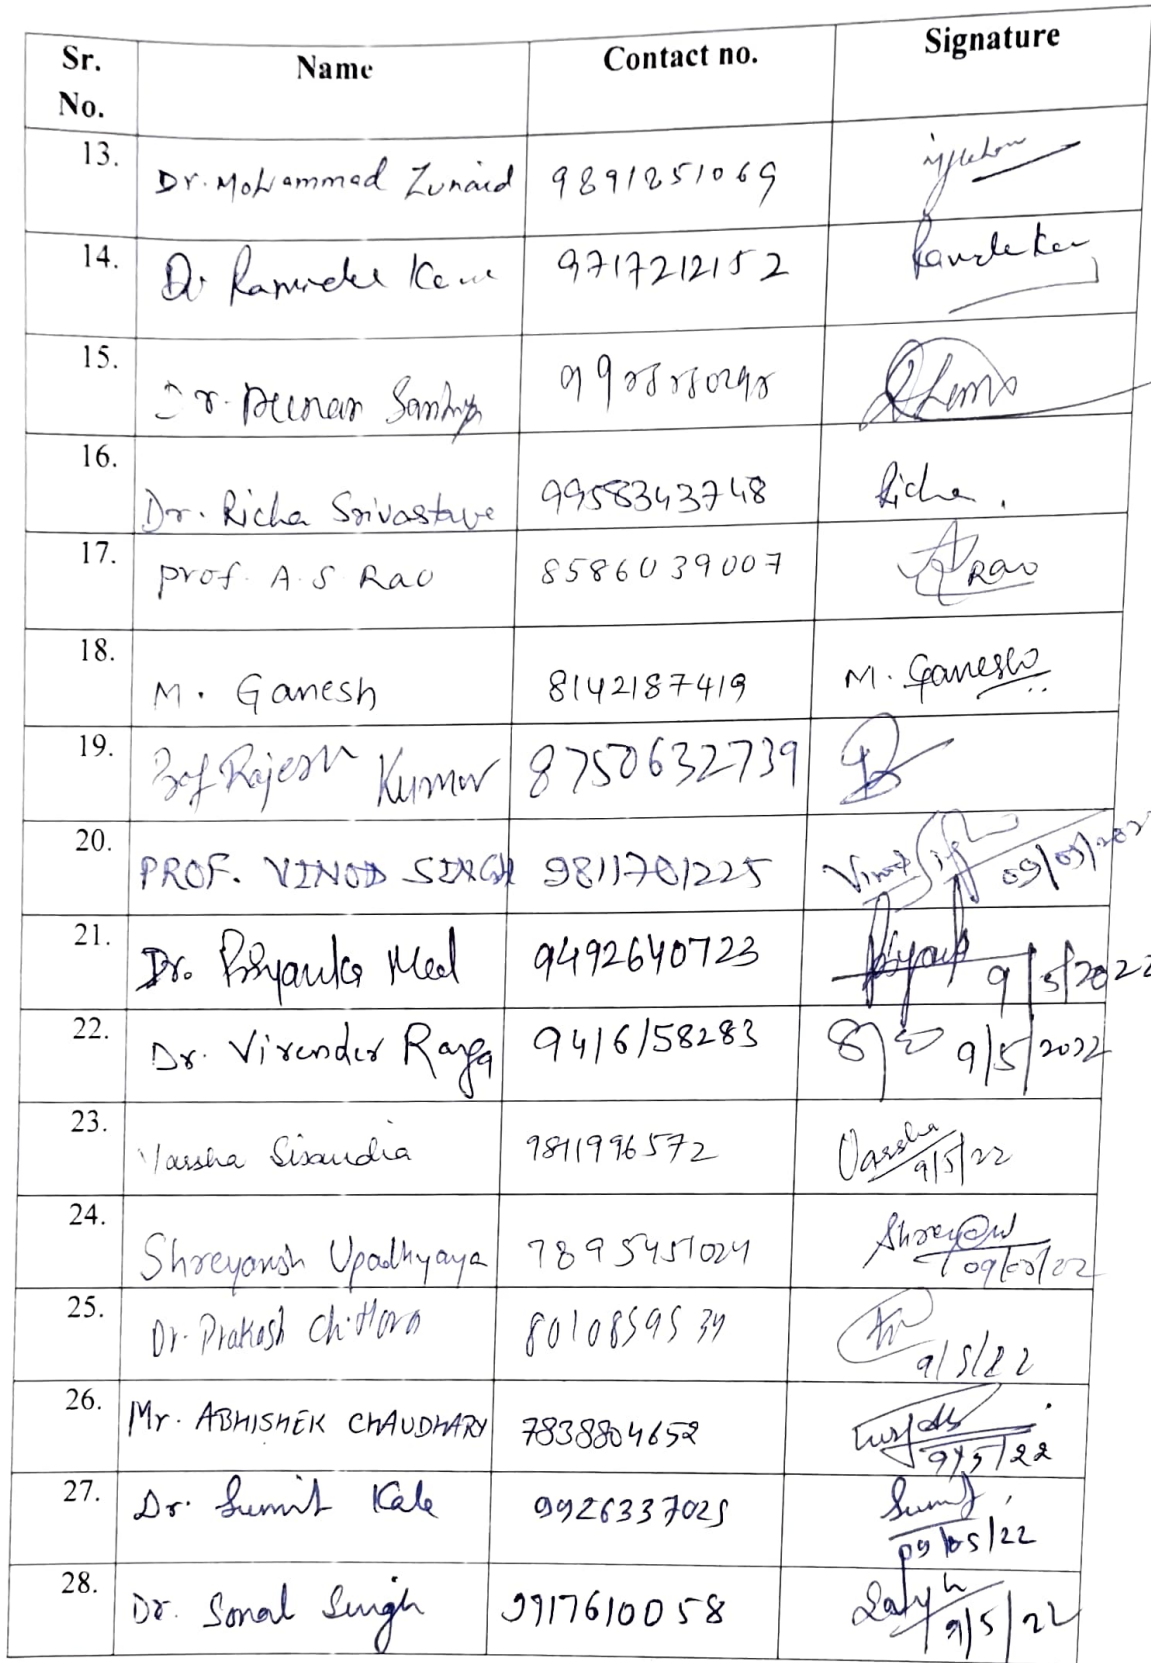 Sr. No. Name Contact no. Signature
13. Dr. Mohammed Zunaid 9891251069
14. Dr 9717212152
15. Dr.
16. Dr. Richa Srivastave 9958343748 Richa.
17. prof. A. S Rao 8586039007 Rao
18. M. Ganesh 8142187419 M. Ganesh
19. Prof Rajesh Kumar 8750632739
20. PROF. VINOD SINGH 9811701225 Vinod
21. Dr. Priyanka Meel 9492640723 9/5/2022
22. Dr. Virender Ranga 9416158283 9/5/2022
23. Varsha Sisaudia 9811996572 Varsha 9/5/22
24. Shreyansh Upadhyaya 7895451024 09/05/22
25. Dr. Prakash Chittora 8010859534 9/5/22
26. Mr. ABHISHEK CHAUDHARY 7838804652 9/5/22
27. Dr. Sumit Kale 9926337025 Sumit 09/05/22
28. Dr. Sonal Singh 9917610058 9/5/22